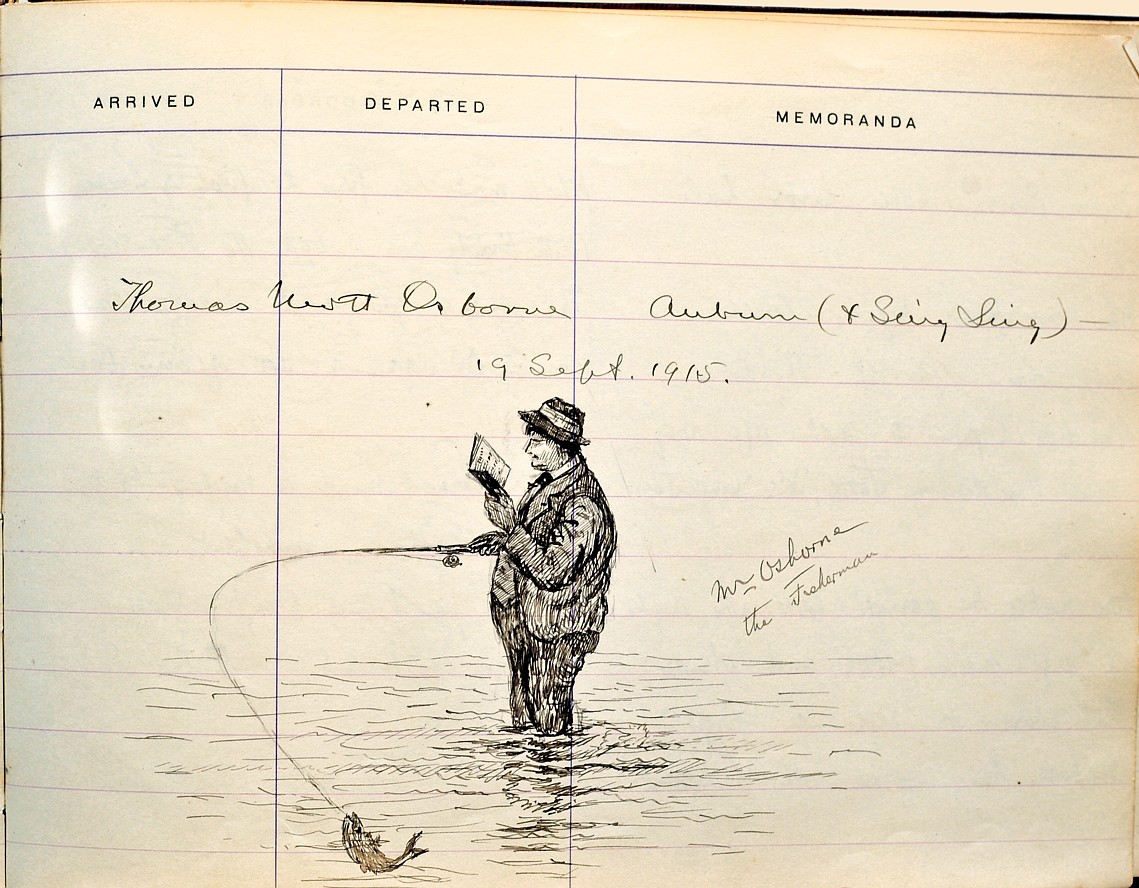 ARRIVED DEPARTED MEMORANDA
Thomas Mott Osborne Auburn (& Sing Sing) —
19 Sept. 1915.
Mr Osborne
the Fisherman